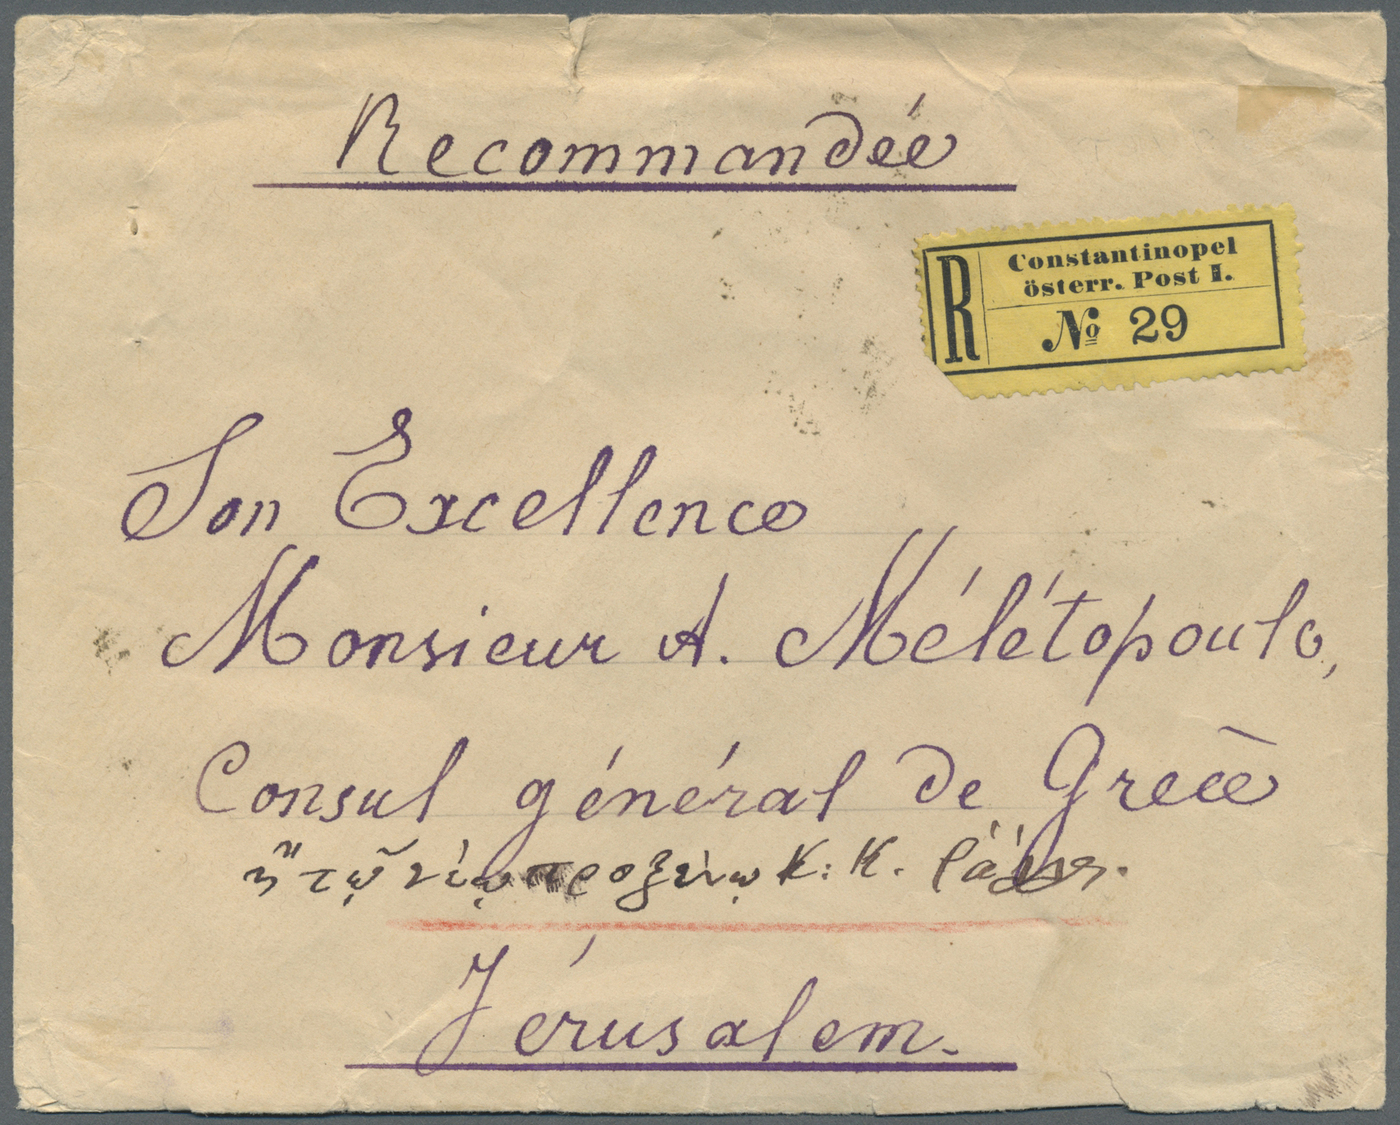 Recommandée
R
Constantinopel
österr. Post I.
№ 29
Son Excellence
Monsieur A. Mélétopoulo,
Consul général de Grèce
ἢ τῷ νέῳ προξένῳ Κ: Κ.
Jérusalem.